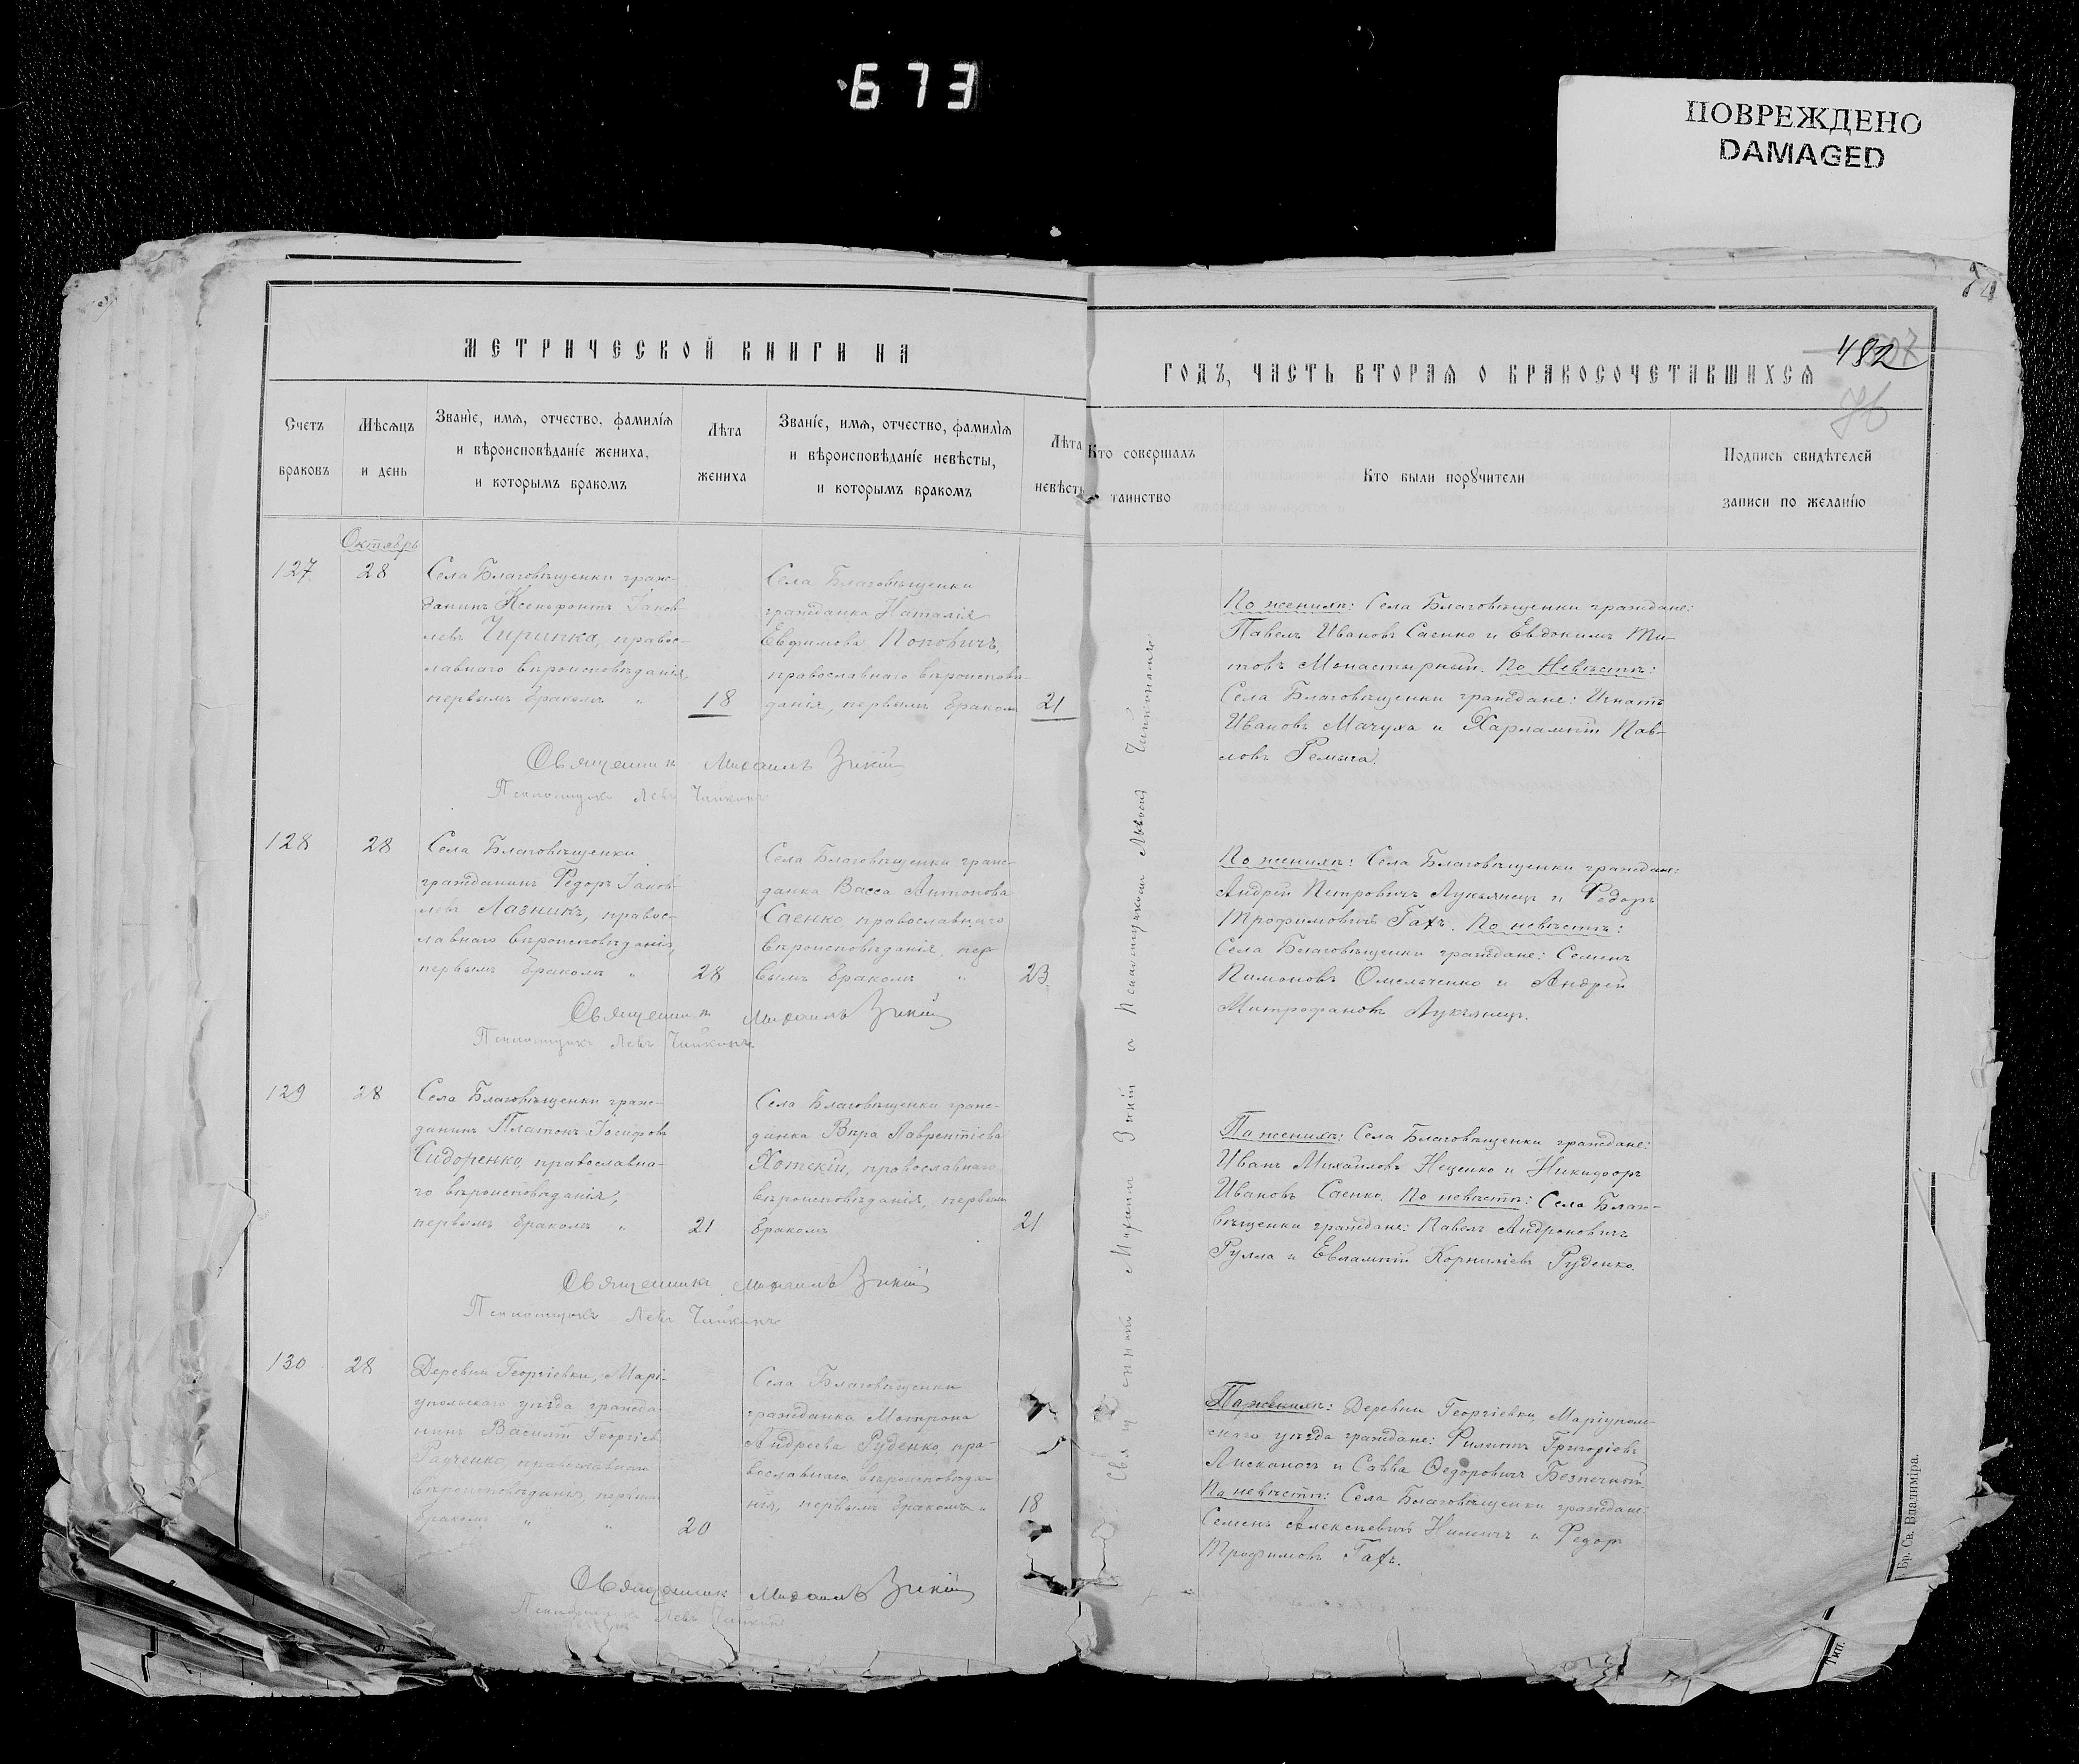 673
ПОВРЕЖДЕНО
DAMAGED
МЕТРИЧЕСКОЙ КНИГИ НА
ГОДЪ, ЧАСТЬ ВТОРАЯ О БРАКОСОЧЕТАВШИХСЯ
482
Счетъ браковъ
Мѣсяцъ и день
Званіе, имя, отчество, фамилія
и вѣроисповѣданіе жениха,
и которымъ бракомъ
Лѣта жениха
Званіе, имя, отчество, фамилія
и вѣроисповѣданіе невѣсты,
и которымъ бракомъ
Лѣта невѣсты
Кто совершалъ таинство
Кто были порꙋчители
Подпись свидѣтелей
записи по желанію
Октябрь
127
28
Села Благовѣщенки граж-
данинъ Ксенофонтъ Іаков-
левъ Чирипка, правос-
лавнаго вѣроисповѣданія,
первымъ бракомъ "
18
Села Благовѣщенки
гражданка Наталія
Евфимова Поповичъ,
православнаго вѣроисповѣ-
данія, первымъ бракомъ
21
По женихѣ: Села Благовѣщенки граждане:
Павелъ Ивановъ Саенко и Евдокимъ Ти-
товъ Монастырный. По Невѣстѣ:
Села Благовѣщенки граждане: Игнатъ
Ивановъ Мачуха и Харлампій Пав-
ловъ Ремыга.
Священникъ Михаилъ Зикій
Псаломщикъ Левъ
128
28
Села Благовѣщенки
гражданинъ Федоръ Іаков-
левъ Лазникъ, правос-
лавнаго вѣроисповѣданія,
первымъ бракомъ "
28
Села Благовѣщенки граж-
данка Васса Антонова
Саенко, православнаго
вѣроисповѣданія, пер-
вымъ бракомъ "
23
По женихѣ: Села Благовѣщенки граждане:
Андрей Петровичъ Лукьянецъ и Федоръ
Трофимовичъ Гахъ. По невѣстѣ:
Села Благовѣщенки граждане: Семенъ
Пимоновъ Омельченко и Андрей
Митрофановъ Лукьянецъ.
Священникъ Михаилъ Зикій
Псаломщикъ Левъ
129
28
Села Благовѣщенки граж-
данинъ Платонъ Іосифовъ
Сидоренко, православна-
го вѣроисповѣданія,
первымъ бракомъ "
21
Села Благовѣщенки граж-
данка Вѣра Лаврентіева
Хотскій, православнаго
вѣроисповѣданія, первымъ
бракомъ
21
По женихѣ: Села Благовѣщенки граждане:
Иванъ Михайловъ Нещенко и Никифоръ
Ивановъ Саенко. По невѣстѣ: Села Благо-
вѣщенки граждане: Павелъ Андроновичъ
Рулла и Евлампій Корниліевъ Руденко.
Священникъ Михаилъ Зикій
Псаломщикъ Левъ
130
28
Деревни Георгіевки, Марі-
упольскаго уѣзда гражда-
нинъ Василій Георгіев
Радченко, православнаго
вѣроисповѣданія, первымъ
бракомъ " "
20
Села Благовѣщенки
гражданка Матрона
Андреева Руденко, пра-
вославнаго вѣроисповѣда-
нія, первымъ бракомъ "
18
По женихѣ: Деревни Георгіевки, Маріуполь-
скаго уѣзда граждане: Филиппъ Григоріевъ
и Савва Федоровичъ Безпечный.
По невѣстѣ: Села Благовѣщенки граждане:
Семенъ Алексѣевичъ и Федоръ
Трофимовъ Гахъ.
Священникъ Михаилъ Зикій
Псаломщикъ Левъ
Священникъ Михаилъ Зикій и Псаломщикъ Левъ
Тип. Бр. Св. Владиміра.